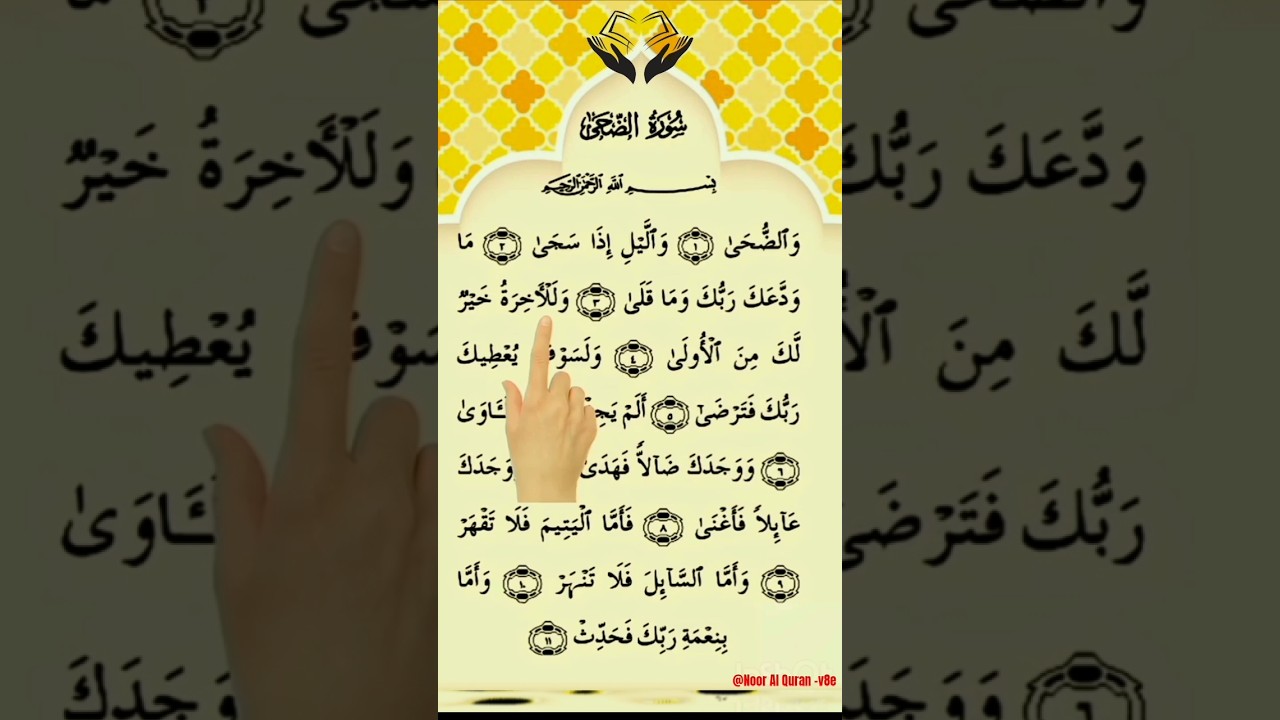 سُورَةُ الضُّحَىٰ
بِسْمِ اللَّهِ الرَّحْمَٰنِ الرَّحِيمِ
وَٱلضُّحَىٰ ١ وَٱلَّيْلِ إِذَا سَجَىٰ ٢ مَا
وَدَّعَكَ رَبُّكَ وَمَا قَلَىٰ ٣ وَلَلْأَخِرَةُ خَيْرٌ
لَّكَ مِنَ ٱلْأُولَىٰ ٤ وَلَسَوْفَ يُعْطِيكَ
رَبُّكَ فَتَرْضَىٰٓ ٥ أَلَمْ
٦ وَوَجَدَكَ ضَآلاًّ فَهَدَىٰ وَجَدَكَ
عَآئِلاً فَأَغْنَىٰ ٨ فَأَمَّا ٱلْيَتِيمَ فَلَا تَقْهَرْ
٩ وَأَمَّا ٱلسَّآئِلَ فَلَا تَنْهَرْ ١٠ وَأَمَّا
بِنِعْمَةِ رَبِّكَ فَحَدِّثْ ١١
@Noor Al Quran -v8e